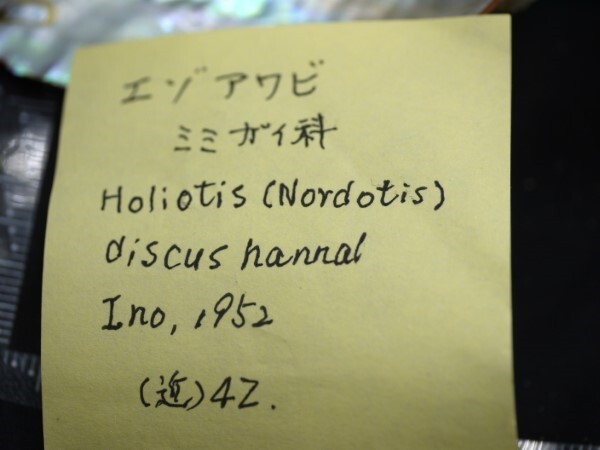 エゾアワビ
ミミガイ科
Holiotis (Nordotis)
discus hannal
Ino, 1952
(近) 42.